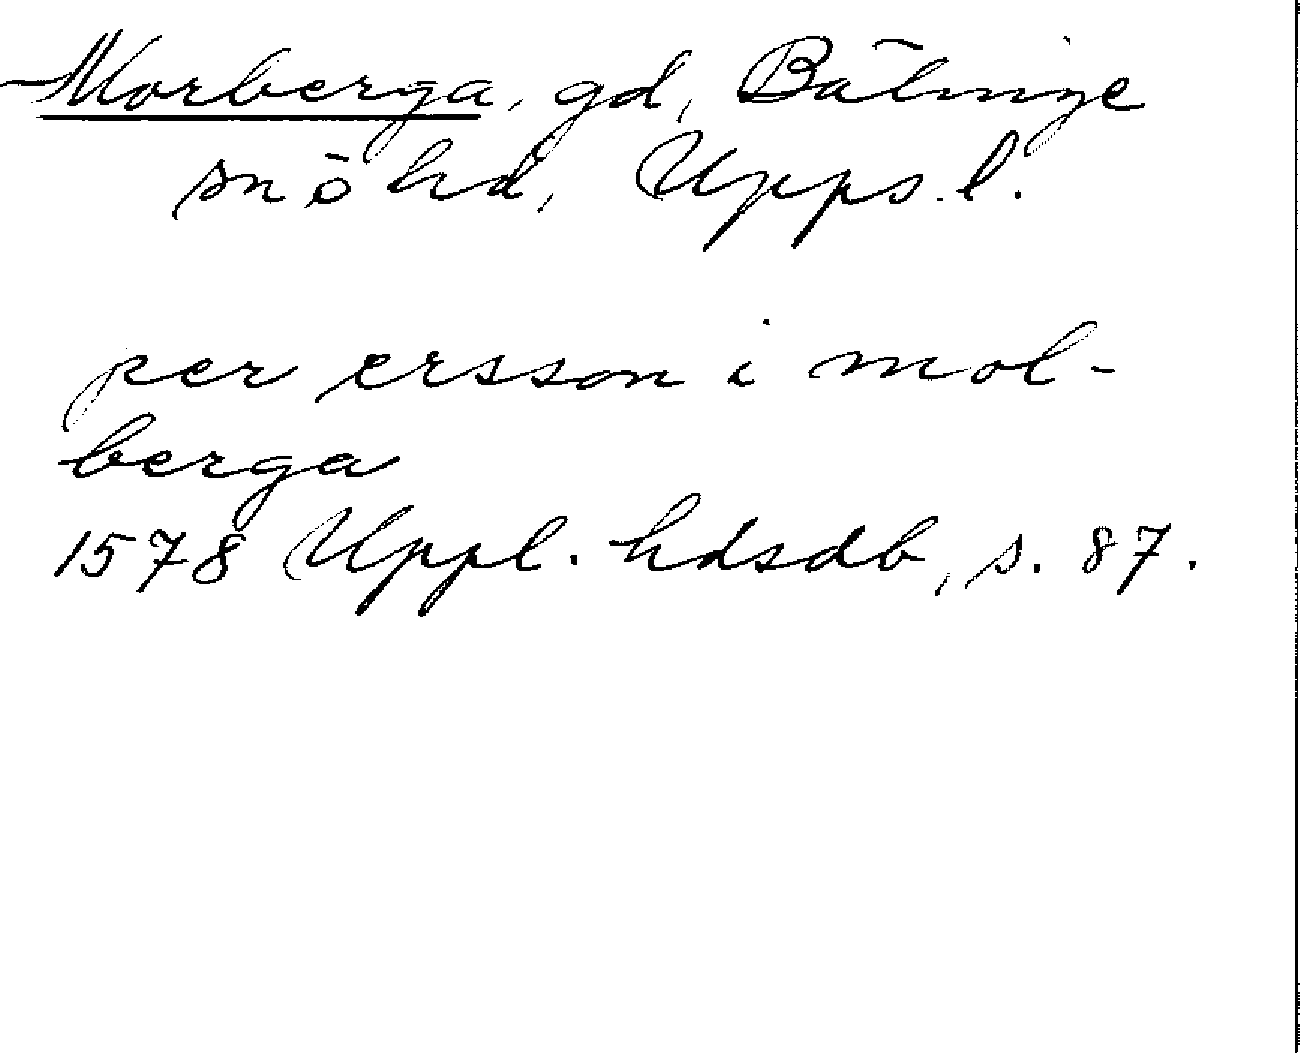 Morberga, gd, Bälinge
sn ö hd, Upps. l.
per ersson i mol-
berga
1578 Uppl. hdsdb, s. 87.